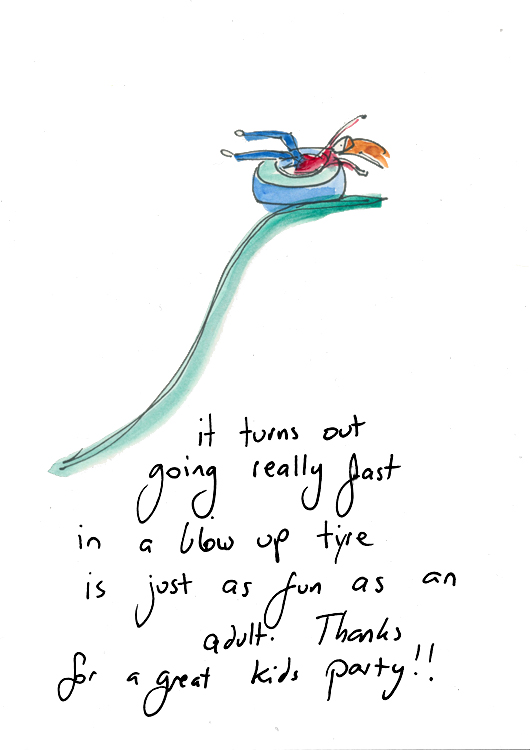 it turns out
going really fast
in a blow up tyre
is just as fun as an
adult. Thanks
for a great kids party!!